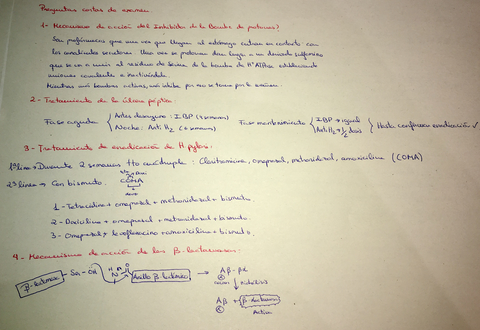 Preguntas cortas de examen
1- Mecanismo de acción del Inhibidor de la Bomba de protones?
Son profármacos que una vez que llegan al estómago entran en contacto con
los canalículos secretores. Una vez se protonan dan lugar a un derivado sulfenamino
que se va a unir al residuo de de la bomba de H⁺ATPasa estableciendo
uniones covalente e inactivándola.
Mientras más bombas activas, más inhibe por eso se toma por la mañana.
2- Tratamiento de la úlcera péptica:
Fase aguda { Antes desayuno: IBP (4 semanas)
Noche: Anti H₂ (6 semanas)
Fase mantenimiento { IBP → igual
Anti H₂ → ½ dosis } Hasta confirmar erradicación ✓
3- Tratamiento de erradicación de H. pylori:
1ª línea → Durante 2 semanas tto cuádruple: Claritromicina, omeprazol, metronidazol, amoxicilina (COMA)
2ª línea → Con bismuto. COMA
1- Tetraciclina + omeprazol + metronidazol + bismuto.
2- Doxiciclina + omeprazol + metronidazol + bismuto.
3- Omeprazol + levofloxacino + amoxicilina + bismuto.
4- Mecanismo de acción de los β-lactámicos:
β-lactamasa - Ser - OH H N O Anillo β-lactámico → Aβ-βL
↓ hidrólisis
Aβ + β-lactamasa
Activa